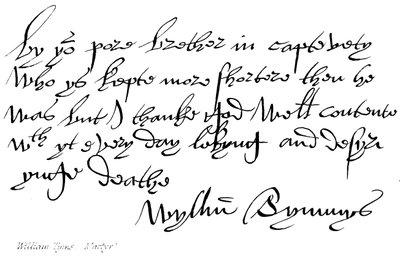 by yor pore brether in captevety
who ys kepte more shortere then he
was but I thanke god well contente
wth yt every day lokyng and desyri
ynge deathe
Wyllm Tymmys
William Tyms Martyr